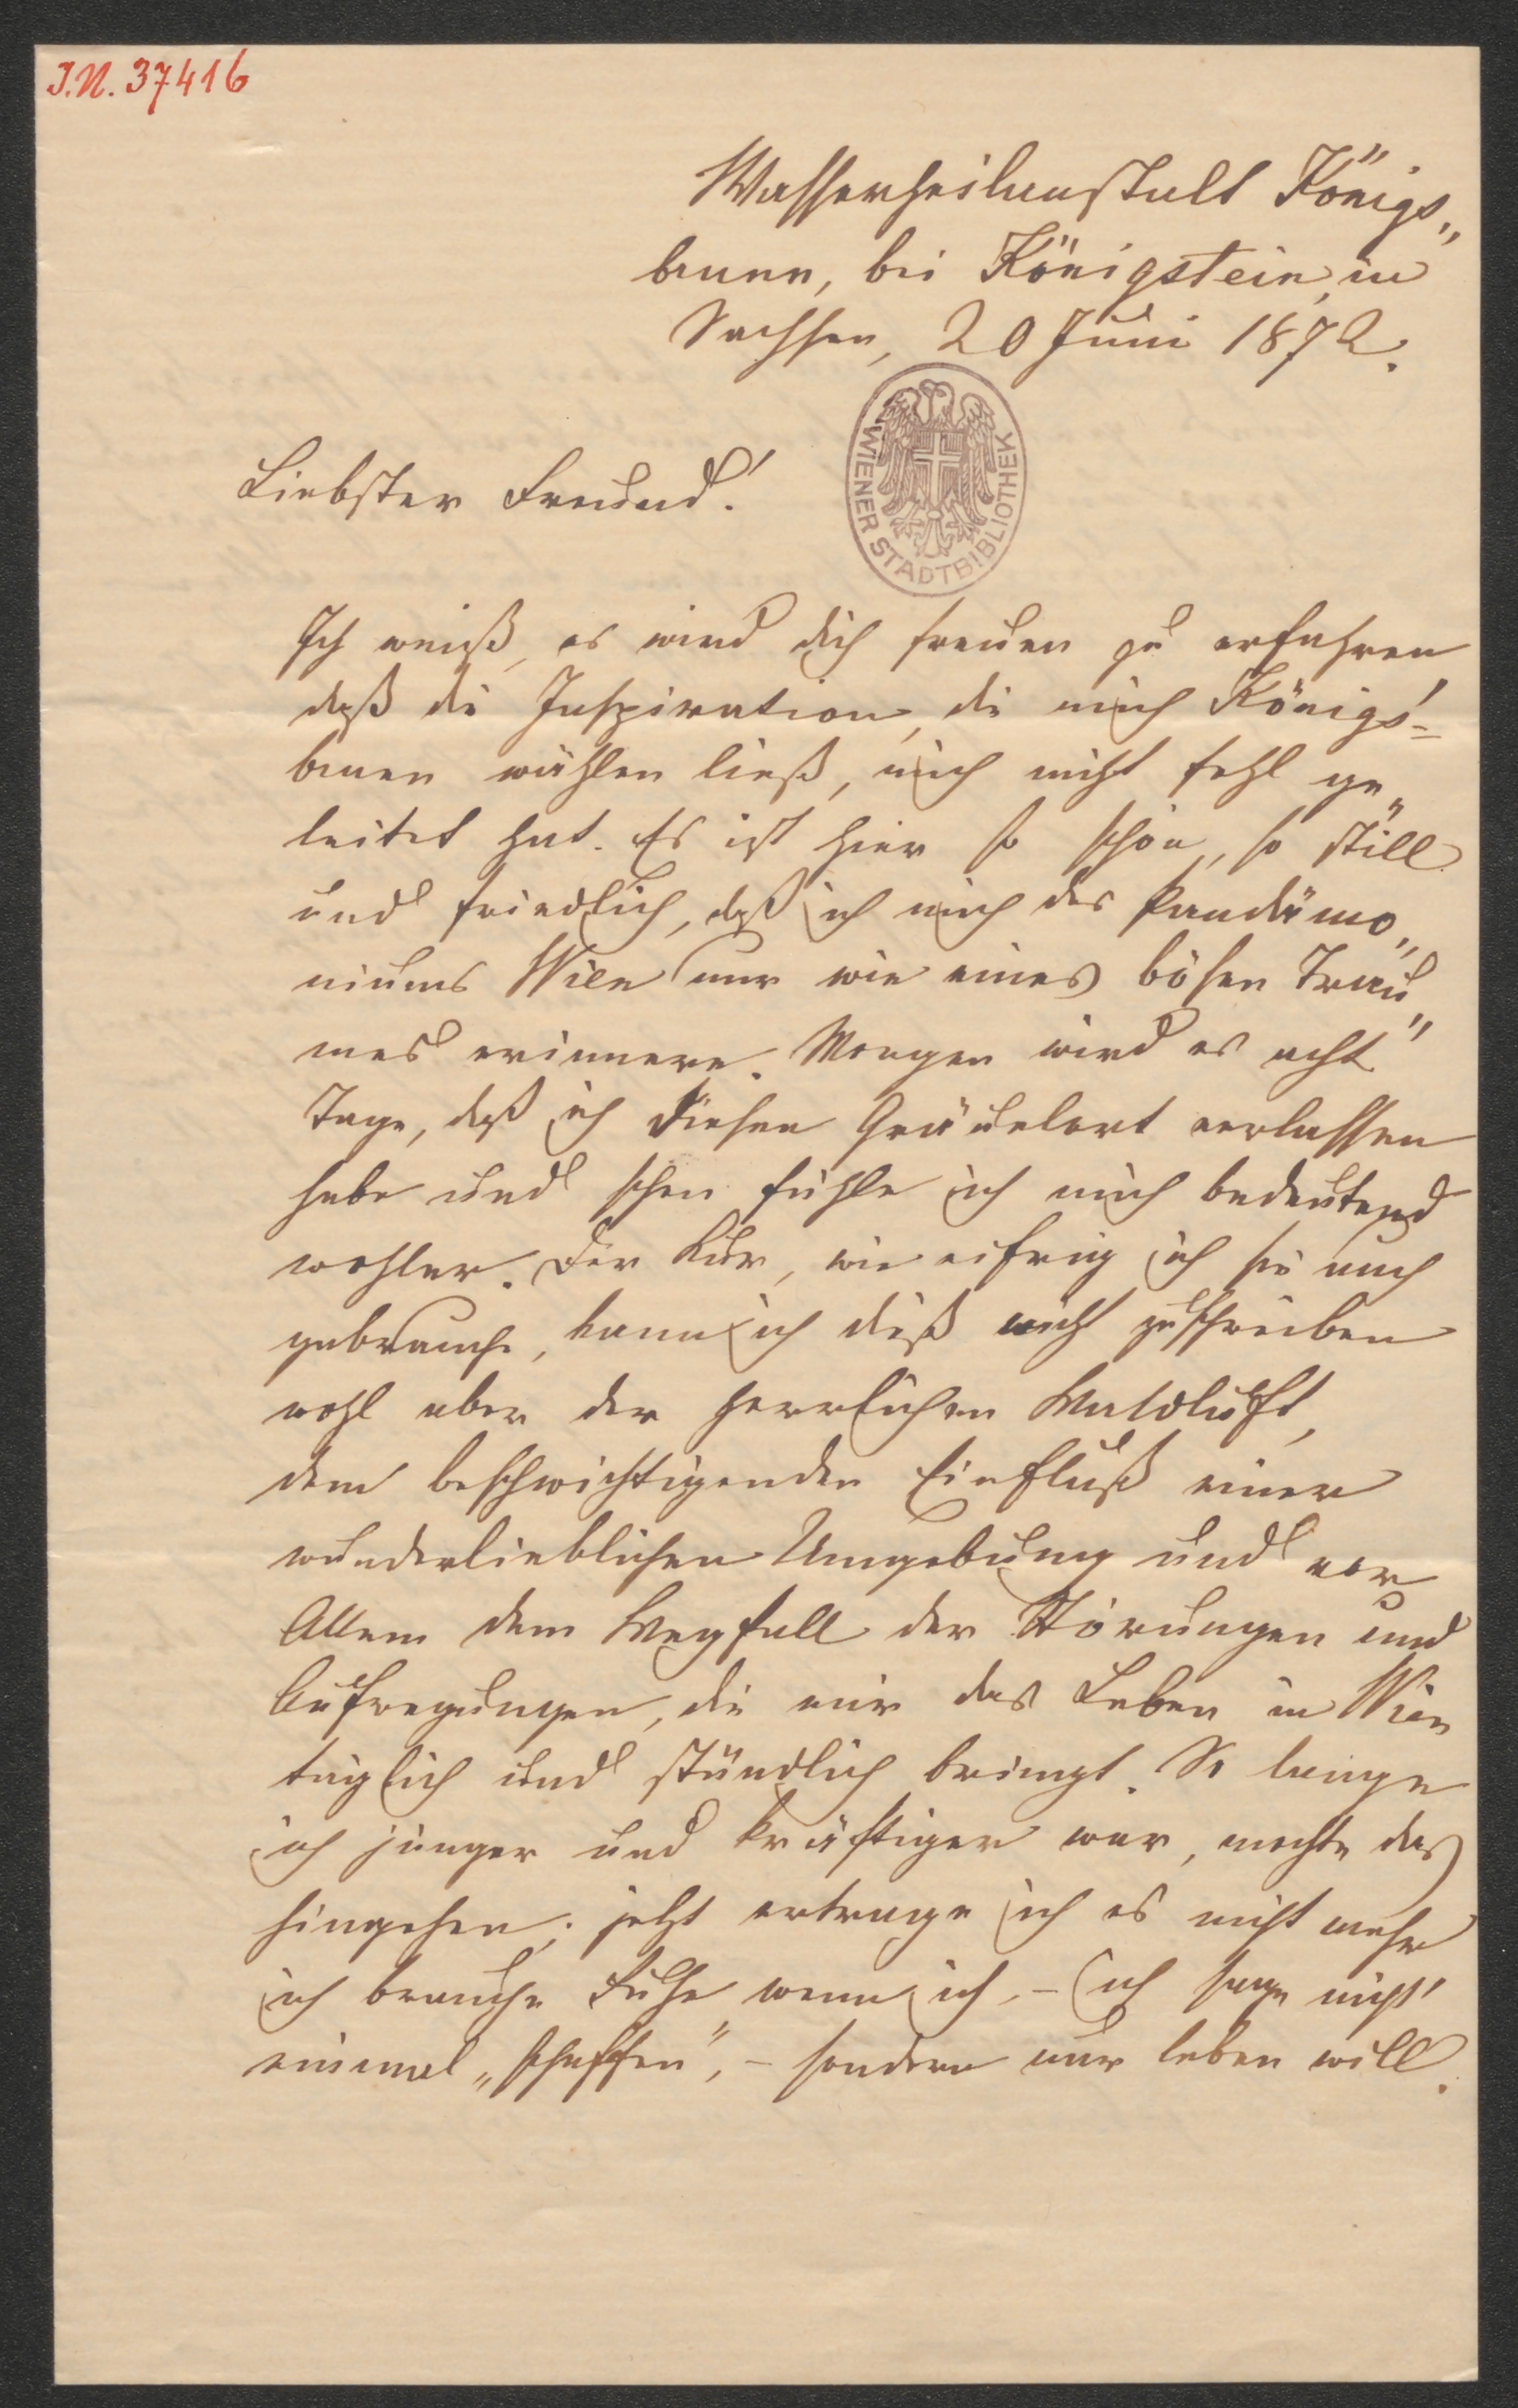 J.N. 37416
Wasserheilanstalt Königs„
brunn, bei Königstein, in
Sachsen, 20 Juni 1872.
WIENER STADTBIBLIOTHEK
Liebster Freund!
Ich weiß, es wird dich freuen zu erfahren,
daß die Inspiration, die mich Königs=
brunn wählen ließ, mich nicht fehl ge„
leitet hat. Es ist hier so schön, so still
und friedlich, daß ich mich des Pandämo„
niums Wien nur wie eines bösen Trau„
mes erinnere. Morgen wird es acht
Tage, daß ich diesen Gräuelort verlassen
habe und schon fühle ich mich bedeutend
wohler. Der Kur, wie eifrig ich sie auch
gebrauche, kann ich dieß nicht zuschreiben
wohl aber der herrlichen Waldluft,
dem beschwichtigenden Einfluß einer
wunderlieblichen Umgebung und vor
Allem dem Wegfall der Störungen und
Aufregungen, die mir das Leben in Wien
täglich und stündlich bringt. So lange
ich jünger und kräftiger war, mochte das
hingehen; jetzt ertrage ich es nicht mehr
ich brauche Ruhe, wenn ich, – ich sage nicht
einmal „schaffen“, – sondern nur leben will.